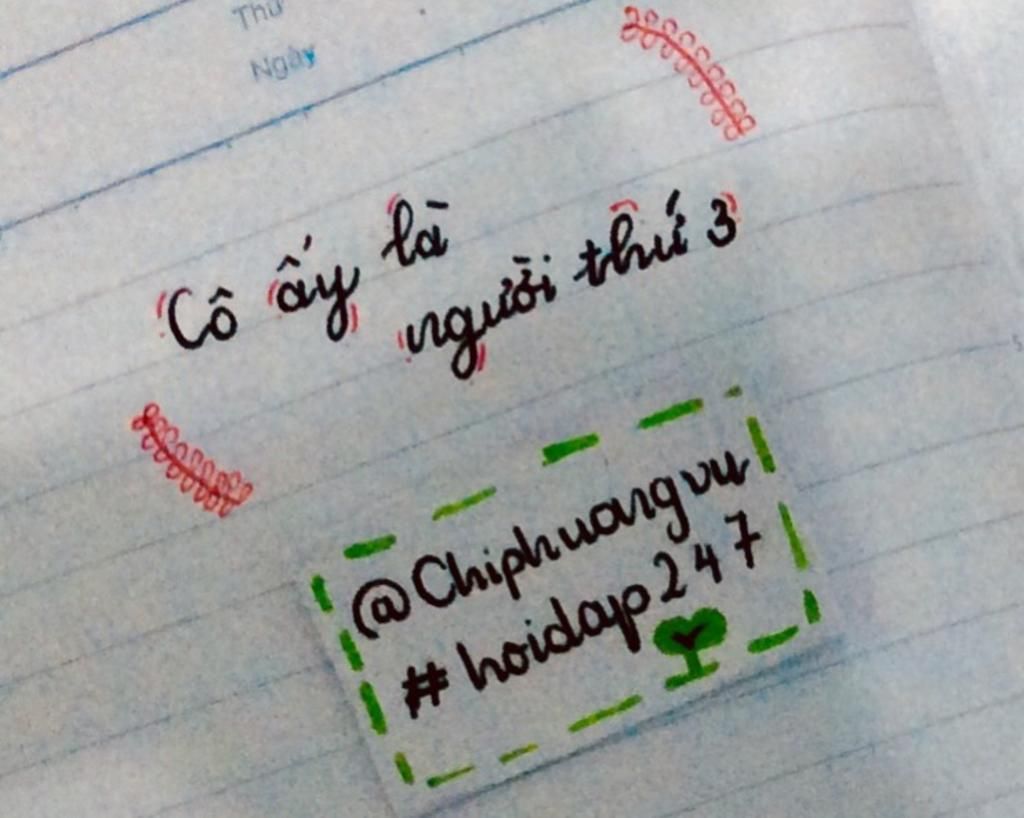 Thứ
Ngày
Cô ấy là
người thứ 3
@Chiphuongvu
#hoidap247